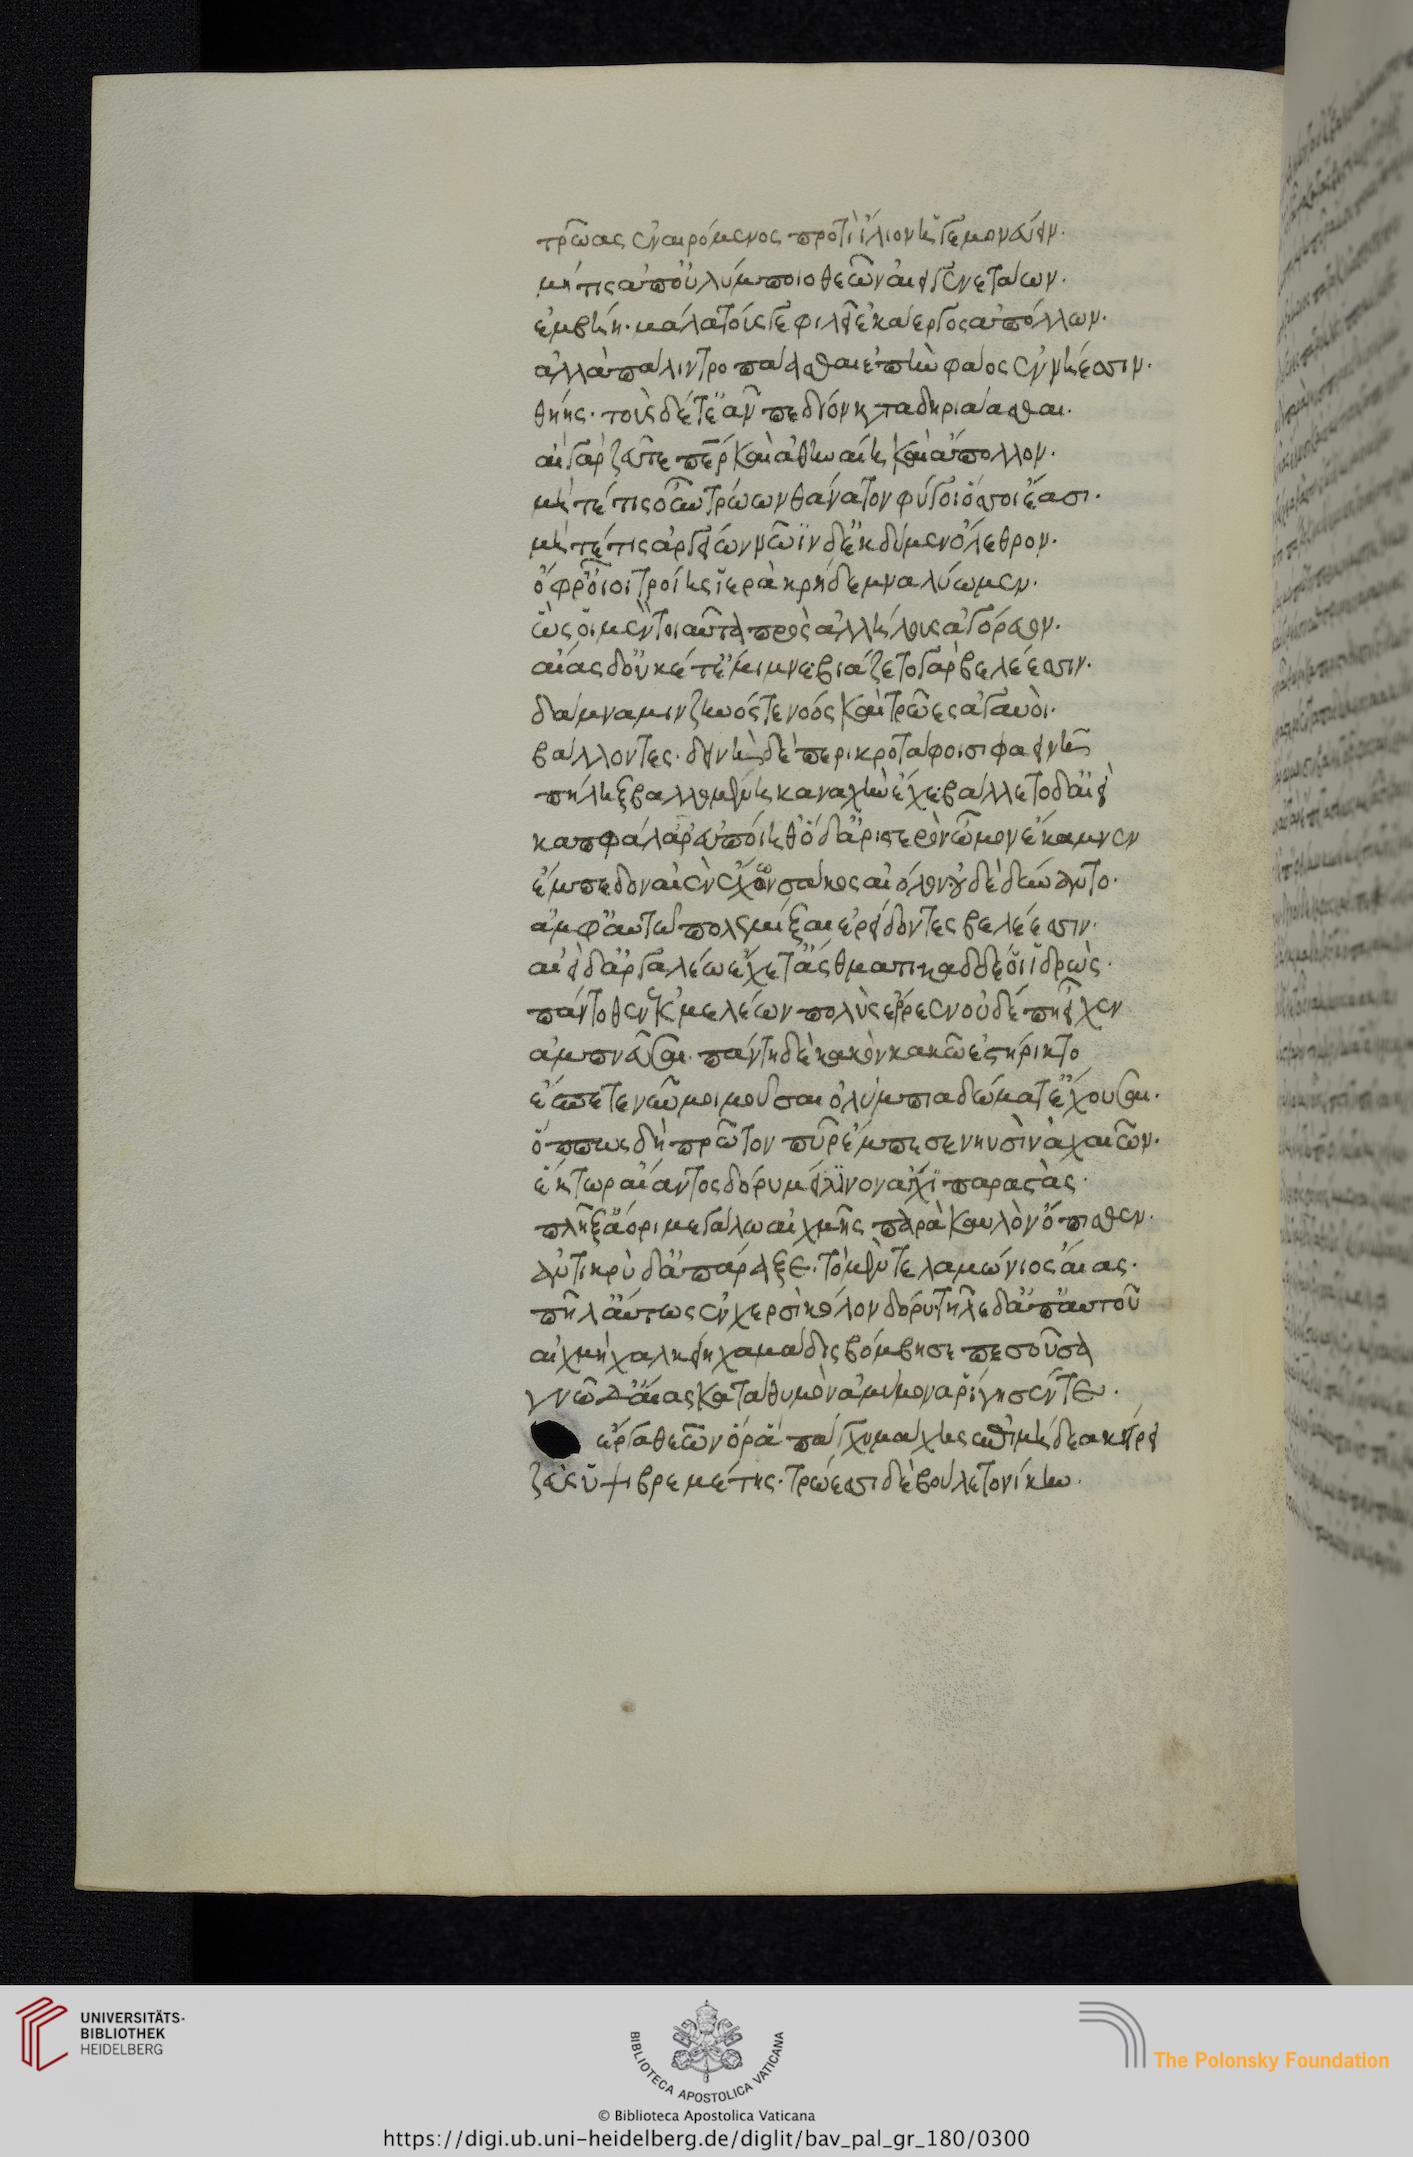 τρῶας ἐναιρόμενος προτὶ ἴλιον ἡγεμονεύειν.
μή τις ἀπ' οὐλύμποιο θεῶν αἰειγενετάων.
ἐμβήῃ. μάλα τούς γε φιλεῖ ἑκάεργος ἀπόλλων.
ἀλλὰ πάλιν τροπάασθαι ἐπὴν φάος ἐν νήεσσιν.
θήῃς. τοὺς δέ τ' ἐᾶν πεδίον κάτα δηριάασθαι.
αἲ γὰρ ζεῦ τε πάτερ καὶ ἀθηναίη καὶ ἄπολλον.
μήτέ τις οὖν τρώων θάνατον φύγοι ὅσσοι ἔασι.
μήτέ τις ἀργείων νῶϊν δ' ἐκδῦμεν ὄλεθρον.
ὄφρ' οἶοι τροίης ἱερὰ κρήδεμνα λύωμεν.
ὣς οἱ μὲν τοιαῦτα πρὸς ἀλλήλους ἀγόρευον.
αἴας δ' οὐκέτ' ἔμιμνε βιάζετο γὰρ βελέεσσιν.
δάμνα μιν ζηνός τε νόος καὶ τρῶες ἀγαυοὶ.
βάλλοντες. δεινὴν δὲ περὶ κροτάφοισι φαεινὴ
πήληξ βαλλομένη καναχὴν ἔχε βάλλετο δ' αἰεὶ
καπφάλαρ' εὐποίηθ' ὁ δ' ἀριστερὸν ὦμον ἔκαμνεν
ἔμπεδον αἰὲν ἔχων σάκος αἰόλον οὐδὲ δύναντο.
ἀμφ' αὐτῷ πελεμίξαι ἐρείδοντες βελέεσσιν.
αἰεὶ δ' ἀργαλέῳ ἔχετ' ἄσθματι καδδέ οἱ ἱδρὼς.
πάντοθεν ἐκ μελέων πολὺς ἔρρεεν οὐδέ πη εἶχεν
ἀμπνεῦσαι. πάντη δὲ κακὸν κακῷ ἐστήρικτο
ἔσπετε νῦν μοι μοῦσαι ὀλύμπια δώματ' ἔχουσαι.
ὅππως δὴ πρῶτον πῦρ ἔμπεσε νηυσὶν ἀχαιῶν.
ἕκτωρ αἴαντος δόρυ μείλινον ἄγχι παραστὰς.
πλῆξ' ἄορι μεγάλῳ αἰχμῆς παρὰ καυλὸν ὄπισθεν.
ἀντικρὺ δ' ἀπάραξε. τὸ μὲν τελαμώνιος αἴας.
πῆλ' αὕτως ἐν χερσὶ κόλον δόρυ τῆλε δ' ἀπ' αὐτοῦ
αἰχμὴ χαλκείη χαμάδις βόμβησε πεσοῦσα
γνῶ δ' αἴας κατὰ θυμὸν ἀμύμονα ῥίγησέν τε.
ἔργα θεῶν ὅ ῥα πάγχυ μάχης ἐπὶ μήδεα κεῖρε
ζεὺς ὑψιβρεμέτης. τρώεσσι δὲ βούλετο νίκην.
UNIVERSITÄTS-
BIBLIOTHEK
HEIDELBERG
BIBLIOTECA APOSTOLICA VATICANA
The Polonsky Foundation
© Biblioteca Apostolica Vaticana
https://digi.ub.uni-heidelberg.de/diglit/bav_pal_gr_180/0300